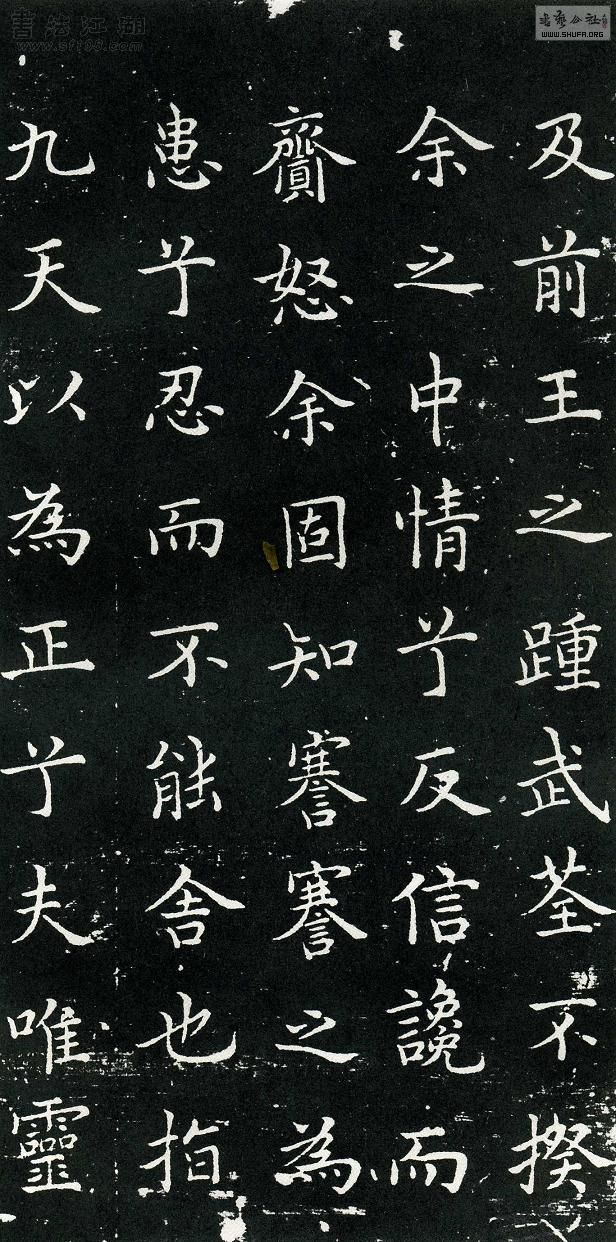 及前王之踵武荃不揆
余之中情兮反信讒而
齎怒余固知謇謇之為
患兮忍而不能舍也指
九天以為正兮夫唯靈
書法江湖
www.sf108.com
書藝公社
WWW.SHUFA.ORG